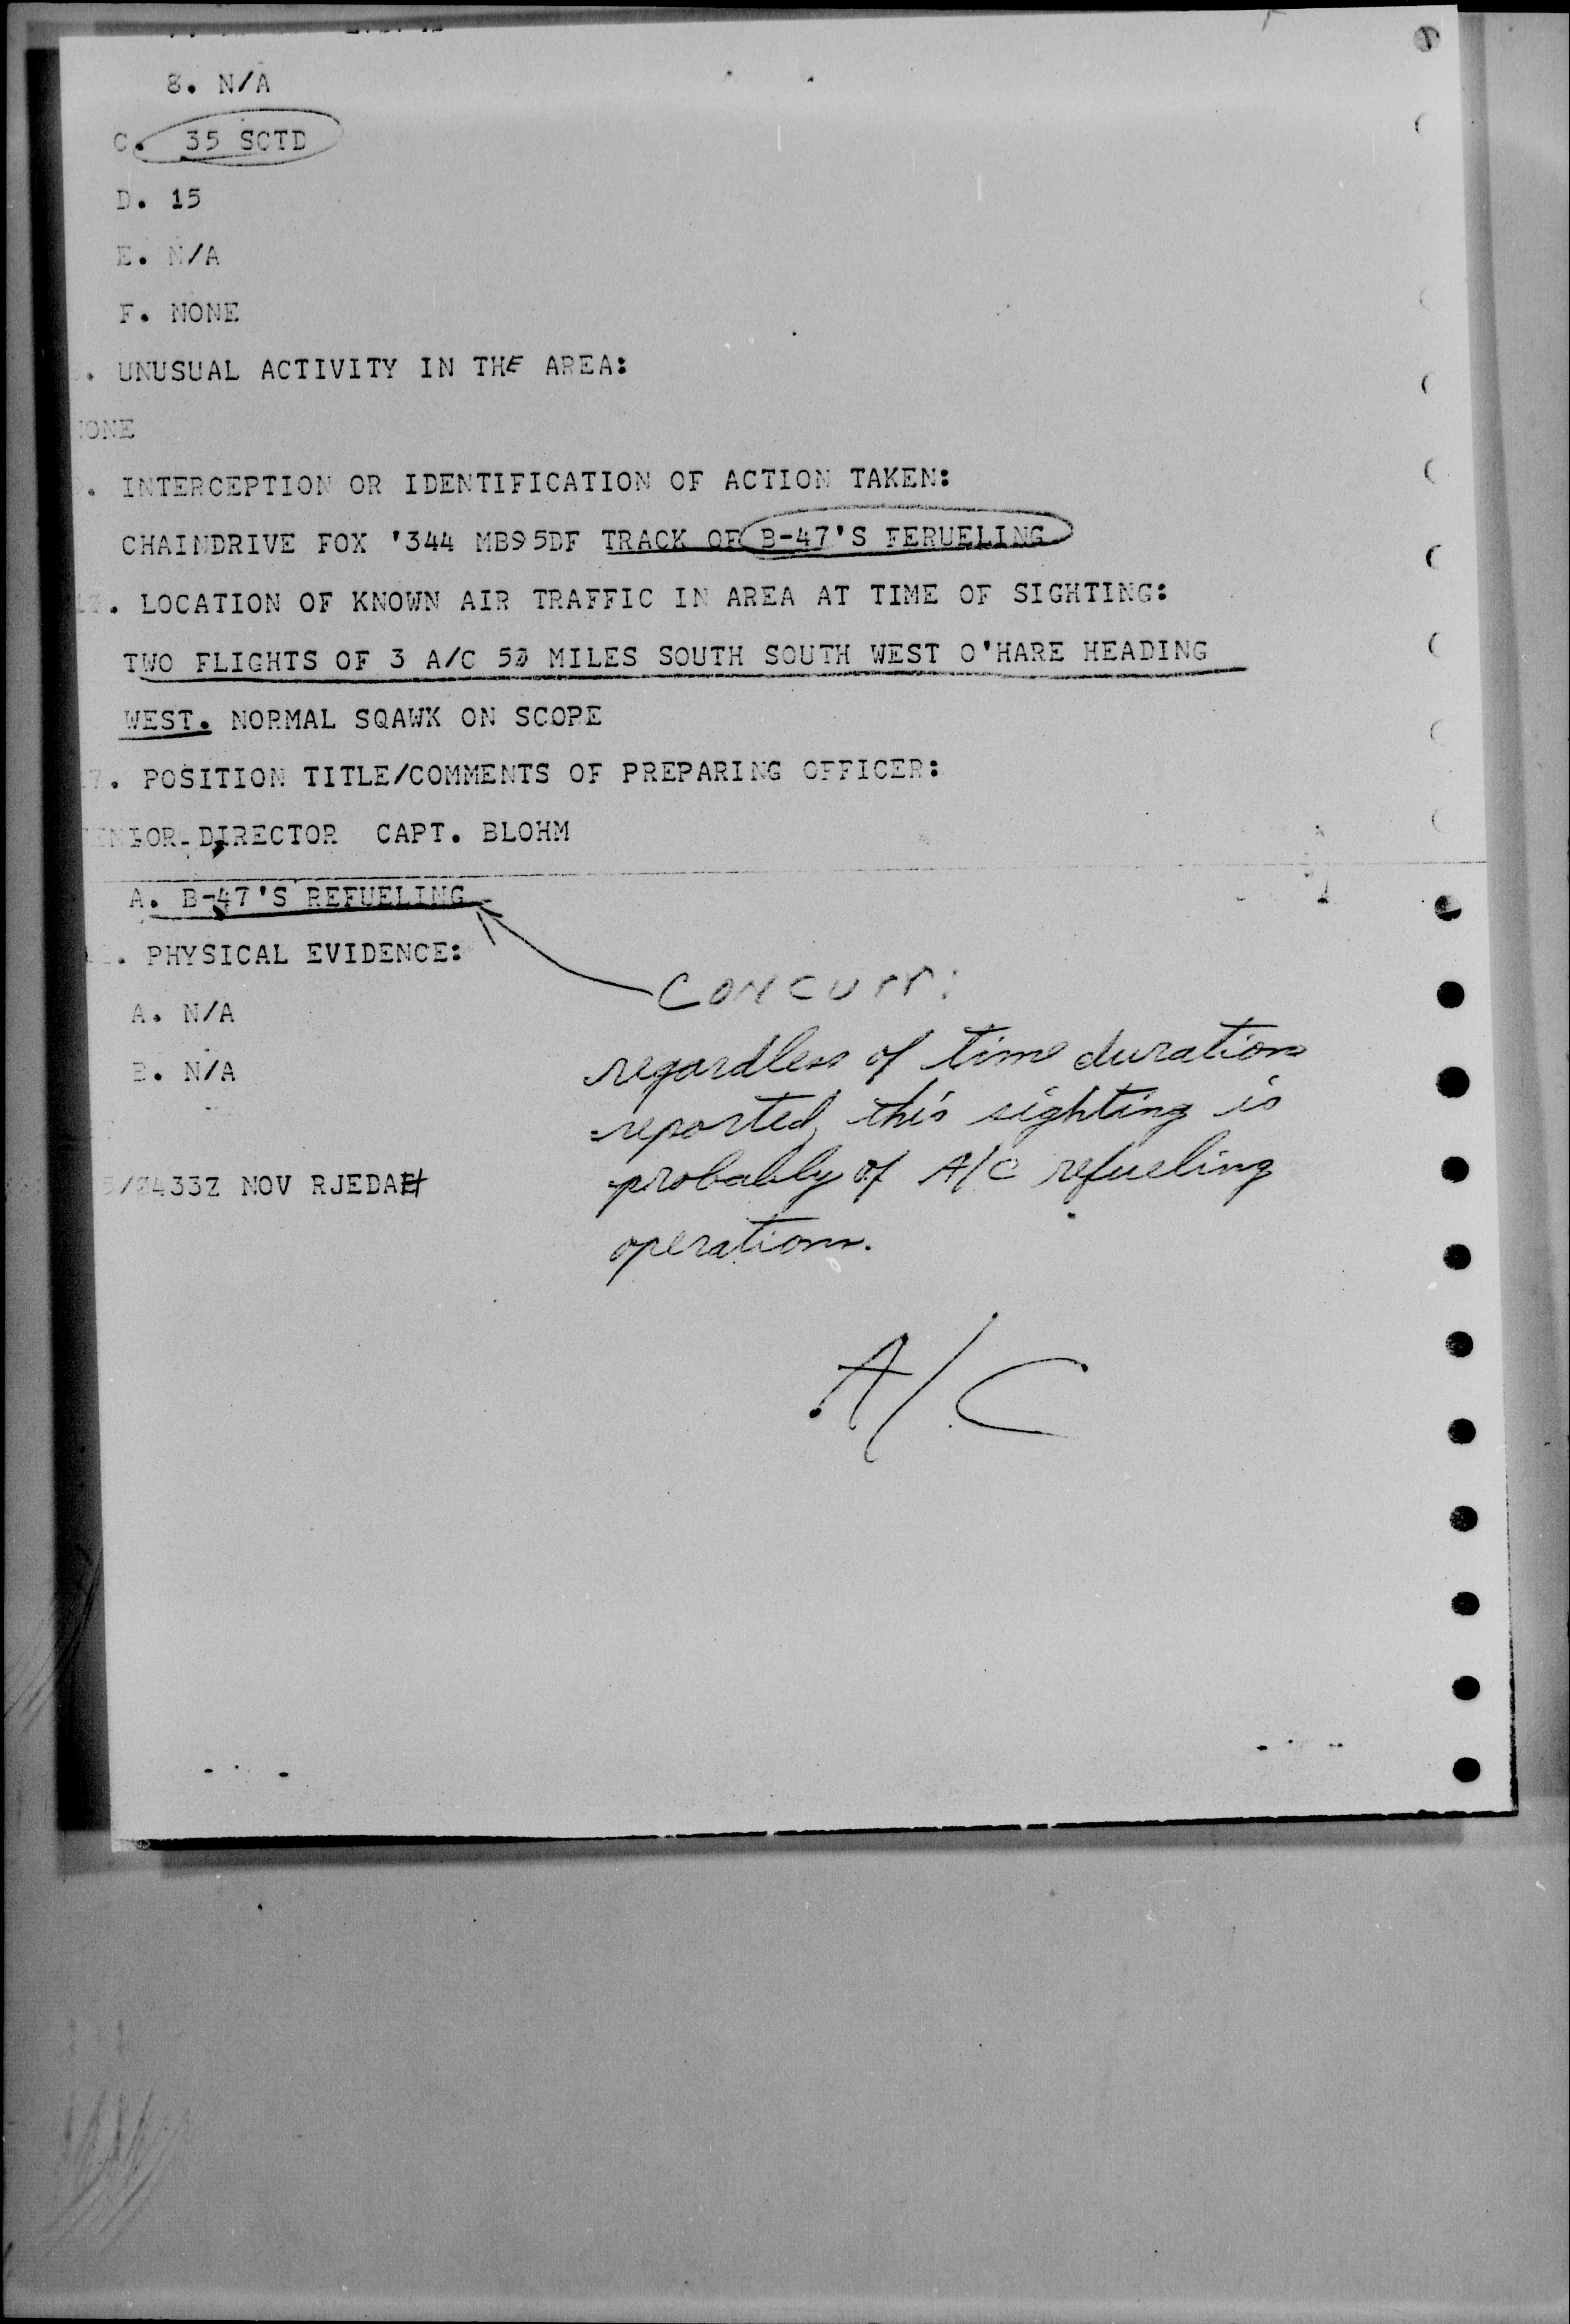 8. N/A
C. 35 SCTD
D. 15
E. N/A
F. NONE
. UNUSUAL ACTIVITY IN THE AREA:
ONE
. INTERCEPTION OR IDENTIFICATION OF ACTION TAKEN:
CHAINDRIVE FOX '344 MB95DF TRACK OF B-47'S FERUELING
. LOCATION OF KNOWN AIR TRAFFIC IN AREA AT TIME OF SIGHTING:
TWO FLIGHTS OF 3 A/C 50 MILES SOUTH SOUTH WEST O'HARE HEADING
WEST. NORMAL SQAWK ON SCOPE
7. POSITION TITLE/COMMENTS OF PREPARING OFFICER:
ENIOR DIRECTOR CAPT. BLOHM
A. B-47'S REFUELING
. PHYSICAL EVIDENCE:
Concurr:
A. N/A
regardless of time duration
B. N/A
reported, this sighting is
probably of A/C refueling
/0433Z NOV RJEDAH
operation.
A/C